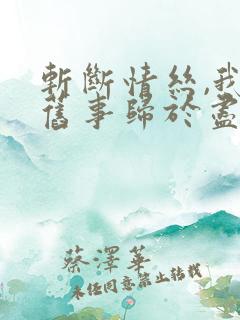 斬斷情絲,我
舊事歸於盡
蔡澤華
未經同意禁止轉載